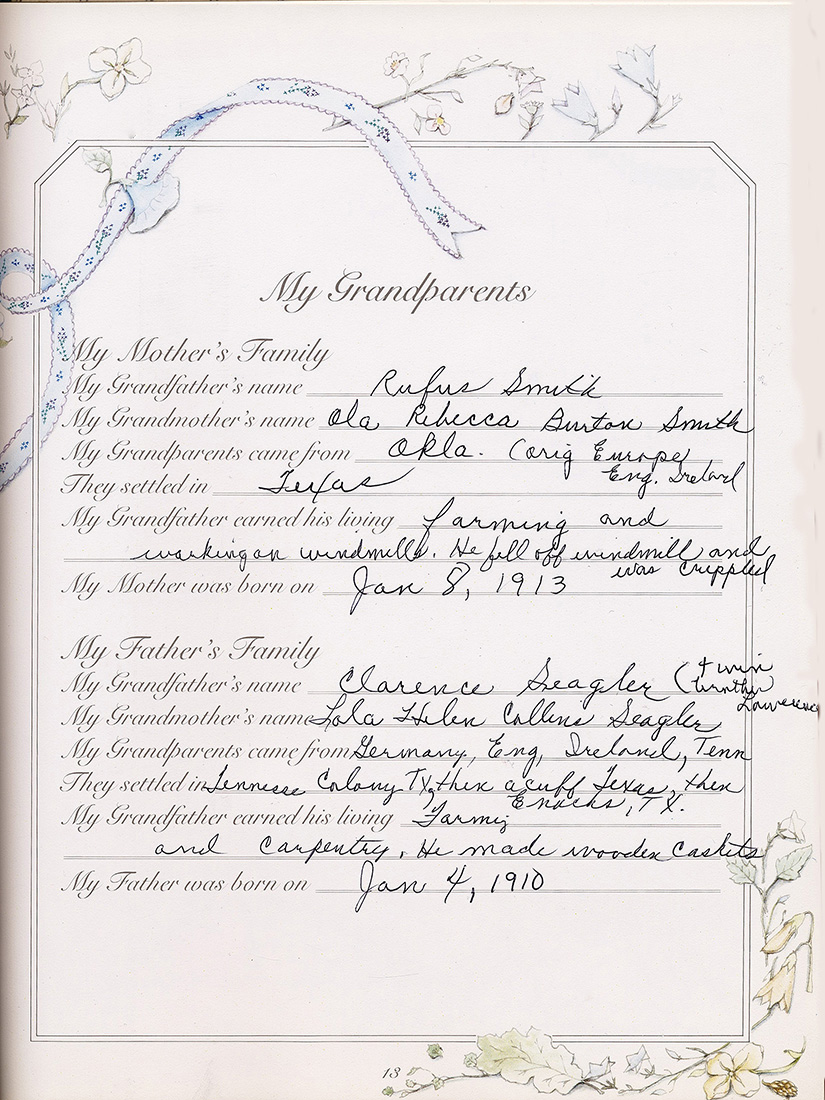 My Grandparents
My Mother's Family
My Grandfather's name Rufus Smith
My Grandmother's name Ola Rebecca Burton Smith
My Grandparents came from Okla. (orig Europe
Eng. Ireland
They settled in Texas
My Grandfather earned his living farming and
working on windmills. He fell off windmill and
was crippled
My Mother was born on Jan 8, 1913
My Father's Family
My Grandfather's name Clarence Seagler (twin
brother)
Lawerence
My Grandmother's name Lola Helen Collins Seagler
My Grandparents came from Germany, Eng, Ireland, Tenn
They settled in Tennesse Colony TX, then acuff Texas, then
Enochs, TX.
My Grandfather earned his living Farming
and Carpentry. He made wooden caskets
My Father was born on Jan 4, 1910
13